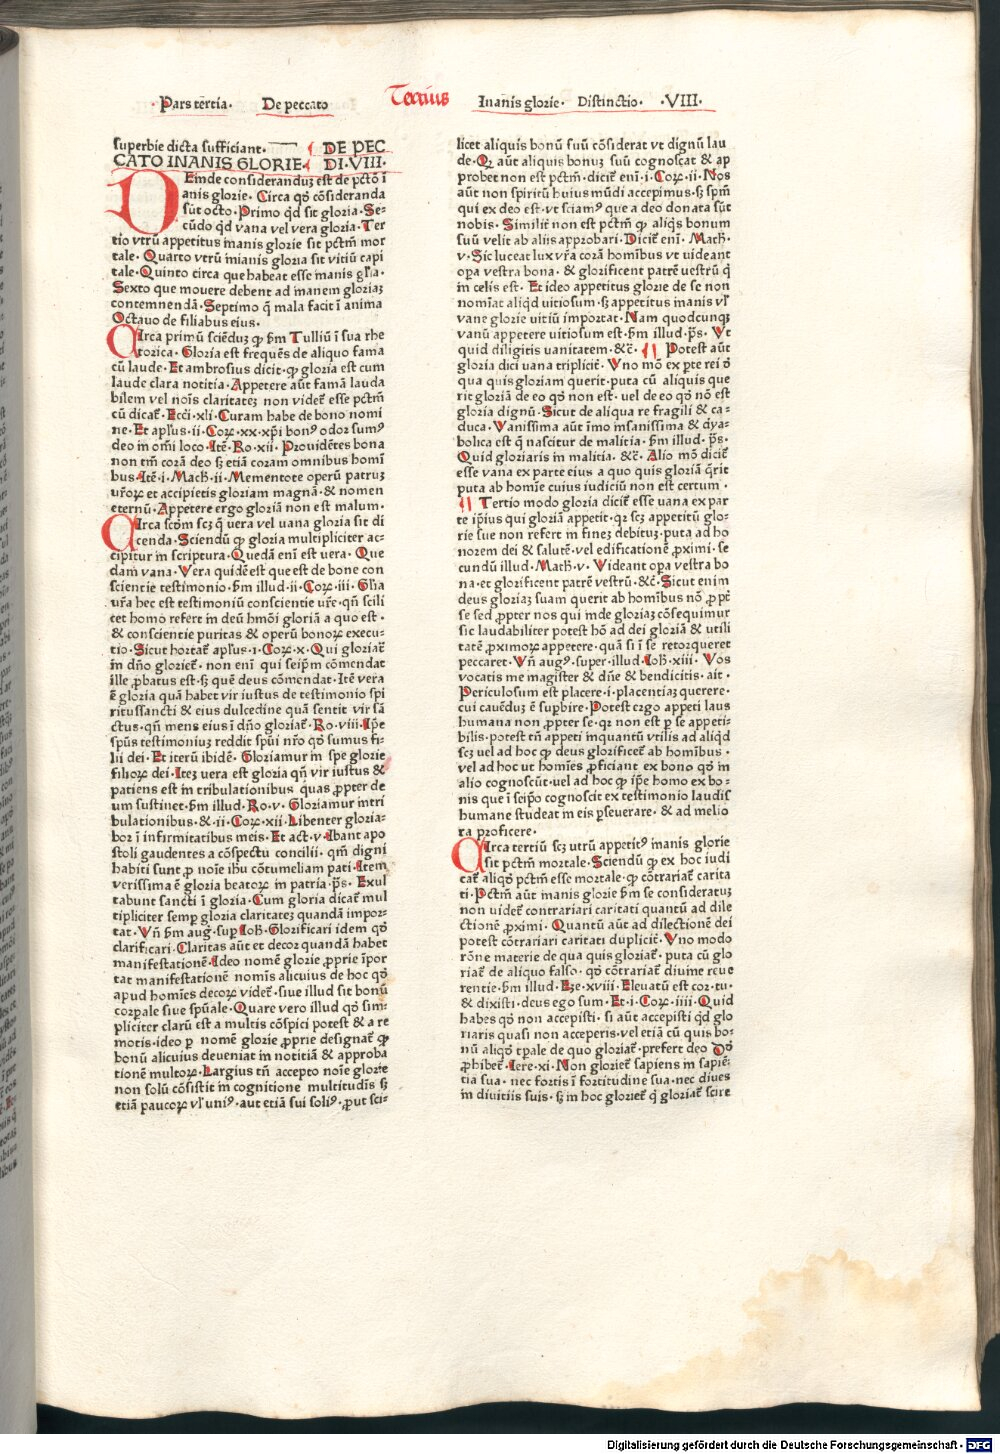 Pars tertia· De peccato Tercius Inanis glorie· Distinctio· ·VIII·
superbie dicta sufficiant· DE PEC
CATO INANIS GLORIE· DI·VIII·
DEinde consideranduʒ est de pctõ ĩ
anis glorie· Circa qđ cõsideranda
sũt octo· Primo qđ sit gloria· Se-
cũdo qđ vana vel vera gloria· Ter
tio vtrũ appetitus inanis glorie sit pctm̃ mor
tale· Quarto vtrũ inianis gloria sit vitiũ capi
tale· Quinto circa que habeat esse inanis gl'ia·
Sexto que mouere debent ad inanem gloriaʒ
contemnendã· Septimo q̃ mala facit ĩ anima
Octauo de filiabus eius·
CIrca primũ sciẽduʒ ꝙ ẜm Tulliũ ĩ sua rhe
torica· Gloria est frequẽs de aliquo fama
cũ laude· Et ambrosius dicit· ꝙ gloria est cum
laude clara notitia· Appetere aũt famã lauda
bilem vel noĩs claritateʒ non videt̃ esse pctm̃
cũ dicat̃· Ecci·xli· Curam habe de bono nomi
ne· Et apl'us·ii·Coꝝ·xx·xp̃i bonꝰ odor sumꝰ
deo in om̃i loco· Itẽ·Ro·xii· Prouidẽtes bona
non tm̃ corã deo sʒ etiã coram omnibus homĩ
bus· Itẽ·i·Mach·ii· Mementote operũ patruʒ
vr̃oꝝ et accipietis gloriam magnã· & nomen
eternũ· Appetere ergo gloriã non est malum·
CIrca scđm scʒ q̃ uera vel uana gloria sit di
cenda· Sciendũ ꝙ gloria multipliciter ac-
cipitur in scriptura· Quedã enĩ est vera· Que
dam vana· Vera quidẽ est que est de bone con
scientie testimonio· ẜm illud·ii·Coꝝ·iii· Gl'ia
ur̃a hec est testimoniũ conscientie ur̃e· qñ scili
cet homo refert in deũ hmõi gloriã a quo est·
& conscientie puritas & operũ bonoꝝ execu-
tio· Sicut hortat̃ apl'us·i·Coꝝ·x· Qui gloriat̃
in dño gloriet̃· non enĩ qui seip̃m cõmendat
ille ꝓbatus est· sʒ quẽ deus cõmendat· Itẽ vera
ẽ gloria quã habet vir iustus de testimonio spi
ritussancti & eius dulcedine quã sentit vir sã
ctus· qñ mens eius ĩ dño gloriat̃· Ro·viii· Ip̃e
sp̃us testimoniuʒ reddit sp̃ui nr̃o qđ sumus fi-
lii dei· Et iterũ ibidẽ· Gloriamur in spe glorie
filioꝝ dei· Iteʒ uera est gloria qñ vir iustus &
patiens est in tribulationibus quas ꝓpter de
um sustinet· ẜm illud· Ro·v· Gloriamur in tri
bulationibus· &·ii·Coꝝ·xii· Libenter gloria-
bor ĩ infirmitatibus meis· Et act·v· Ibant apo
stoli gaudentes a cõspectu concilii· qm̃ digni
habiti sunt ꝑ noĩe ihu cõtumeliam pati· Item
verissima ẽ gloria beatoꝝ in patria· p̃s· Exul
tabunt sancti ĩ gloria· Cum gloria dicat̃ mul
tipliciter semꝑ gloria claritateʒ quandã impor-
tat· Vñ ẜm aug̃·suꝑ Ioħ· Glorificari idem qđ
clarificari· Claritas aũt et decoꝝ quandã habet
manifestationẽ· Ideo nomẽ glorie ꝓprie ĩpor
tat manifestationẽ nomĩs alicuius de hoc qđ
apud homĩes decoꝝ videt̃· siue illud sit bonũ
corꝑale siue sp̃uale· Quare vero illud qđ sim-
pliciter clarũ est a multis cõspici potest & a re
motis· ideo ꝑ nomẽ glorie ꝓprie designat̃ ꝙ
bonũ alicuius deueniat in notitiã & approba
tionẽ multoꝝ· Largius tñ accepto noĩe glorie
non solũ cõsistit in cognitione multitudĩs sʒ
etiã paucoꝝ vl' uniꝰ· aut etiã sui soliꝰ· ꝓut sci-
licet aliquis bonũ suũ cõsiderat vt dignũ lau
de· Qʒ aũt aliquis bonuʒ suũ cognoscat & ap
probet non est pctm̃· dicit̃ enĩ·i·Coꝝ·ii· Nos
aũt non spiritũ huius mũdi accepimus· sʒ sp̃m
qui ex deo est· vt sciamꝰ que a deo donata sũt
nobis· Similiт̃ non est pctm̃ ꝙ aliq̃s bonum
suũ velit ab aliis approbari· Dicit̃ enĩ·Math·
v· Sic luceat lux vr̃a corã homĩbus vt uideant
oꝑa vestra bona· & glorificent patrẽ uestrũ q̃
in celis est· Et ideo appetitus glorie de se non
nomĩat aliqđ uitiosum· sʒ appetitus inanis vl'
vane glorie uitiũ importat· Nam quodcunqʒ
vanũ appetere uitiosum est· ẜm illud·p̃s· Vt
quid diligitis uanitatem·&c̃· Potest aũt
gloria dici uana tripliciт̃· Vno mõ ex ꝑte rei đ
qua quis gloriam querit· puta cũ aliquis que
rit gloriã de eo qđ non est· uel de eo qđ nõ est
gloria dignũ· Sicut de aliqua re fragili & ca-
duca· Vanissima aũt imo insanissima & dya-
bolica est q̃ nascitur de malitia· ẜm illud·p̃s·
Quid gloriaris in malitia·&c̃· Alio mõ dicit̃
esse vana ex parte eius a quo quis gloriã q̃rit
puta ab homĩe cuius iudiciũ non est certum·
Tertio modo gloria dicit̃ esse uana ex par
te ip̃ius qui gloriã appetit· qʒ scʒ appetitũ glo-
rie sue non refert in fineʒ debituʒ· puta ad ho
norem dei & salutẽ· vel edificationẽ ꝓximi· se
cundũ illud·Math·v· Videant oꝑa vestra bo
na· et glorificent patrẽ vestrũ·&c̃· Sicut enim
deus gloriaʒ suam querit ab homĩbus nõ ꝓpt̃
se sed ꝓpter nos qui inde gloriaʒ cõsequimur
sic laudabiliter potest hõ ad dei gloriã & utili
tatẽ ꝓximoꝝ appetere· quã si ĩ se retorqueret
peccaret· Vñ augꝰ·super·illud·Ioħ·xiii· Vos
vocatis me magister & dñe & bendicitis·ait·
Periculosum est placere·i·placentiaʒ querere·
cui cauẽduʒ ẽ suꝑbire· Potest ergo appeti laus
humana non ꝓpter se· qʒ non est ꝑ se appeti-
bilis· potest tñ appeti inquantũ vtilis ad aliqđ
scʒ uel ad hoc ꝙ deus glorificet̃ ab homĩbus·
vel ad hoc ut homĩes ꝓficiant ex bono qđ in
alio cognoscũt· uel ad hoc ꝙ ip̃e homo ex bo-
nis que ĩ seip̃o cognoscit ex testimonio laudis
humane studeat in eis ꝑseuerare· & ad melio
ra proficere·
CIrca tertiũ scʒ utrũ appetitꝰ inanis glorie
sit pctm̃ mortale· Sciendũ ꝙ ex hoc iudi
cat̃ aliqđ pctm̃ esse mortale· ꝙ cõtrariat̃ carita
ti· Pctm̃ aũt inanis glorie ẜm se consideratuʒ
non uidet̃ contrariari caritati quantũ ad dile
ctionẽ ꝓximi· Quantũ aũt ad dilectionẽ dei
potest cõtrariari caritati dupliciт̃· Vno modo
rõne materie de qua quis gloriat̃· puta cũ glo
riat̃ de aliquo falso· qđ cõtrariat̃ diuine reue
rentie· ẜm illud· Eʒe·xviii· Eleuatũ est cor·tu·
& dixisti·deus ego sum· Et·i·Coꝝ·iiii· Quid
habes qđ non accepisti· si aũt accepisti qđ glo
riaris quasi non acceperis· vel etiã cũ quis bo-
nũ aliqđ tꝑale de quo gloriat̃· prefert deo Qđ
ꝓhibet̃· Iere·xi· Non gloriet̃ sapiens in sapiẽ-
tia sua· nec fortis ĩ fortitudine sua· nec diues
in diuitiis suis· sʒ in hoc gloriet̃ q̃ gloriat̃ scire
Digitalisierung gefördert durch die Deutsche Forschungsgemeinschaft · DFG